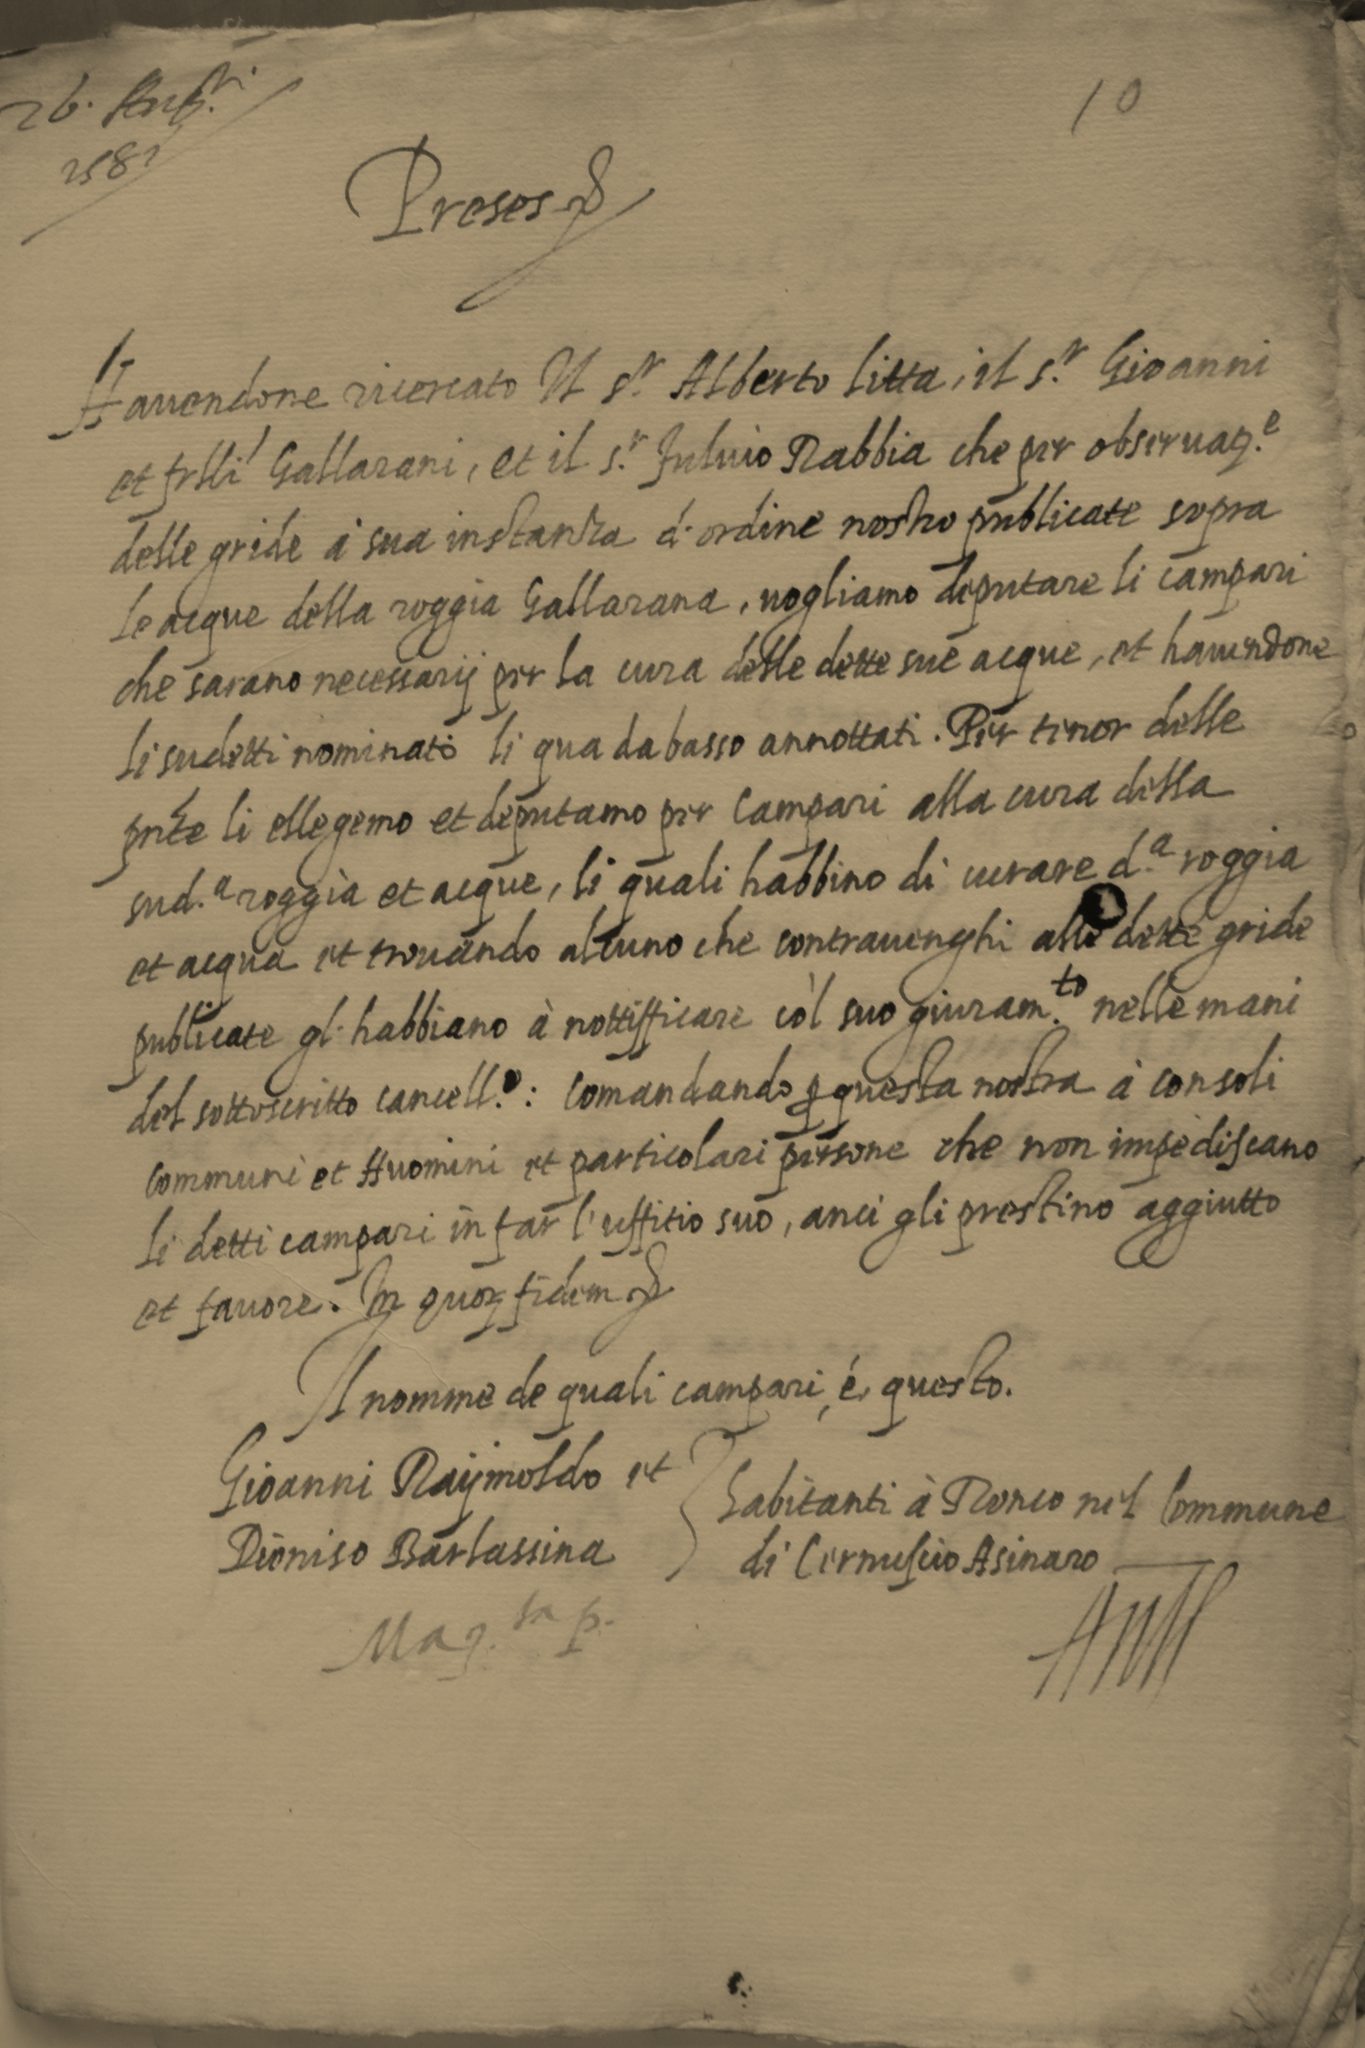 10
1581
Preses
Hauendone ricercato Il s.r Alberto litta, il s.r Gioanni
et frlli Gallarani, et il s.r fuluio Rabbia che per obseruaz.e
delle gride à sua instanza d'ordine nostro publicate sopra
le acque della roggia Gallarana, uogliamo deputare li campari
che sarano necessarij per la cura delle dette sue acque, et hauendone
li sudetti nominato li qua da basso annottati. Per tenor delle
pnte li ellegemo et deputamo per Campari alla cura della
sud.a roggia et acque, li quali habbino di curare d.a roggia
et acqua et trouando alcuno che contrauenghi alle dette gride
publicate gl' habbiano à nottifficare cò'l suo giuram.to nelle mani
del sottoscritto cancell.o: Comandando p questa nostra à consoli
Communi et Huomini et particolari persone che non impediscano
li detti campari in far l'uffitio suo, anci gli prestino aggiutto
et fauore. In quor fidem
Il nomme de quali campari, é, questo.
Gioanni Raijmoldo et
Dioniso Barlassina
habitanti à Ronco nel Commune
di Cernuscio Asinaro